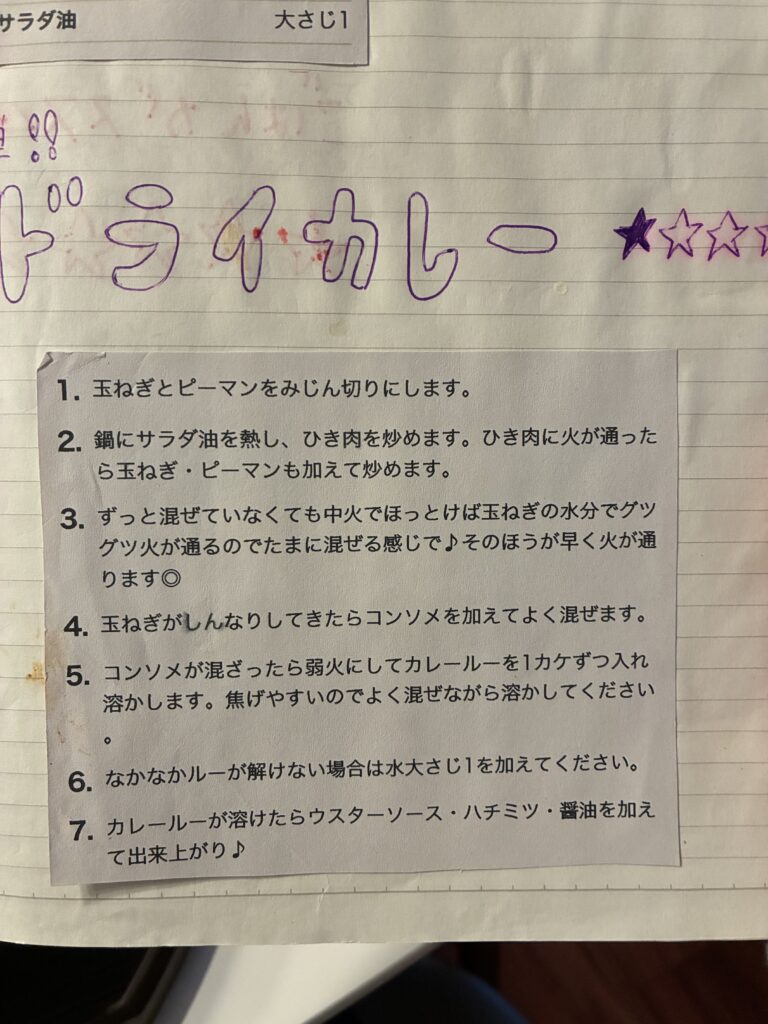 サラダ油 大さじ1
!!
ドライカレー ★☆☆☆
1. 玉ねぎとピーマンをみじん切りにします。
2. 鍋にサラダ油を熱し、ひき肉を炒めます。ひき肉に火が通った
ら玉ねぎ・ピーマンも加えて炒めます。
3. ずっと混ぜていなくても中火でほっとけば玉ねぎの水分でグツ
グツ火が通るのでたまに混ぜる感じで♪そのほうが早く火が通
ります◎
4. 玉ねぎがしんなりしてきたらコンソメを加えてよく混ぜます。
5. コンソメが混ざったら弱火にしてカレールーを1カケずつ入れ
溶かします。焦げやすいのでよく混ぜながら溶かしてください
。
6. なかなかルーが解けない場合は水大さじ1を加えてください。
7. カレールーが溶けたらウスターソース・ハチミツ・醤油を加え
て出来上がり♪